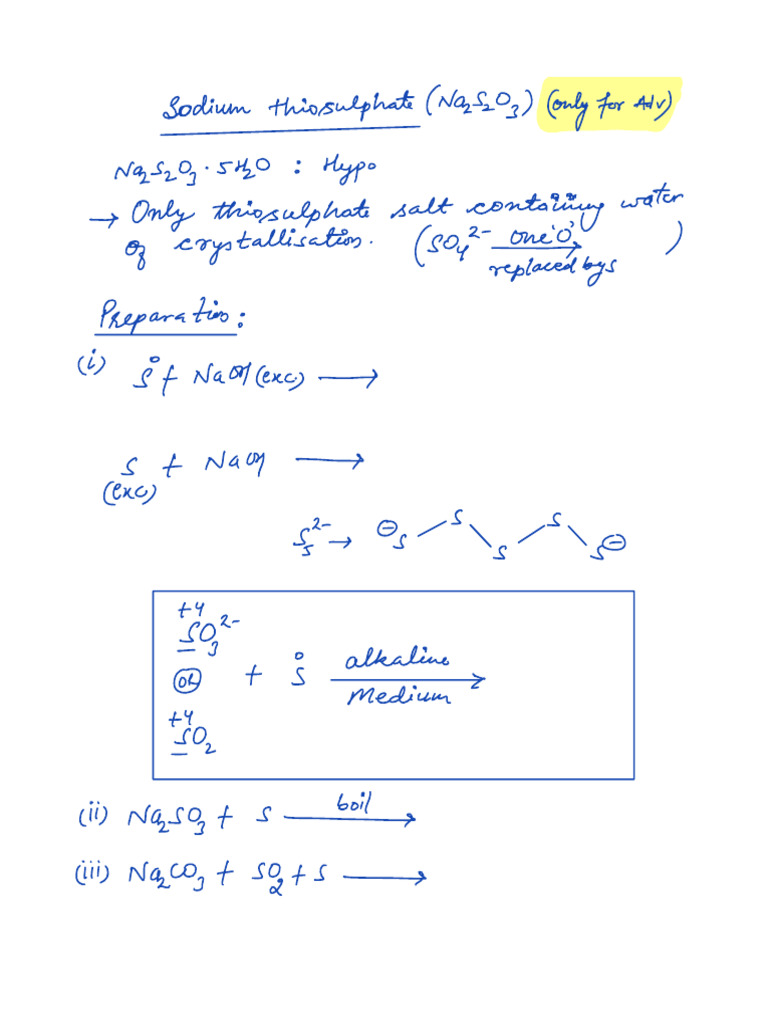 Sodium thiosulphate (Na₂S₂O₃) (only for Adv)
Na₂S₂O₃·5H₂O : Hypo
→ Only thiosulphate salt containing water
of crystallisation. (SO₄²⁻ one 'O' → replaced by S )
Preparation:
(i) S⁰ + NaOH (exc) →
S + NaOH →
(exc)
S₅²⁻ → ⊖S S S S S⊖
+4
SO₃²⁻
OR + S⁰ alkaline Medium →
+4
SO₂
(ii) Na₂SO₃ + S boil →
(iii) Na₂CO₃ + SO₂ + S →